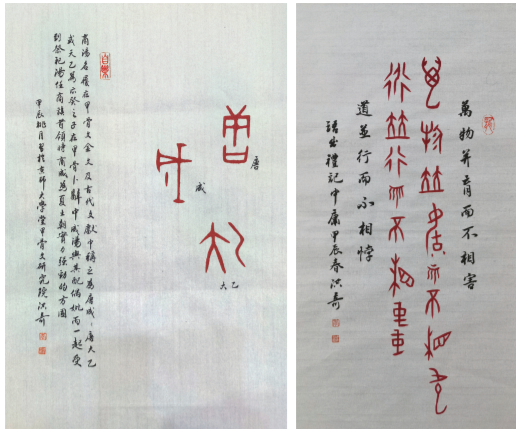 唐
成
大乙
商湯名履在甲骨文金文及古代文獻中稱之為唐成、唐大乙
或天乙為示癸之子在甲骨卜辭中成湯與其配偶妣丙一起受
到祭祀湯任商族首領時商成為夏王朝實力強勁的方國
甲辰桃月書於安師大學堂甲骨文研究院洪奇
萬物并育而不相害
道並行而不相悖
語出禮記中庸甲辰春洪奇